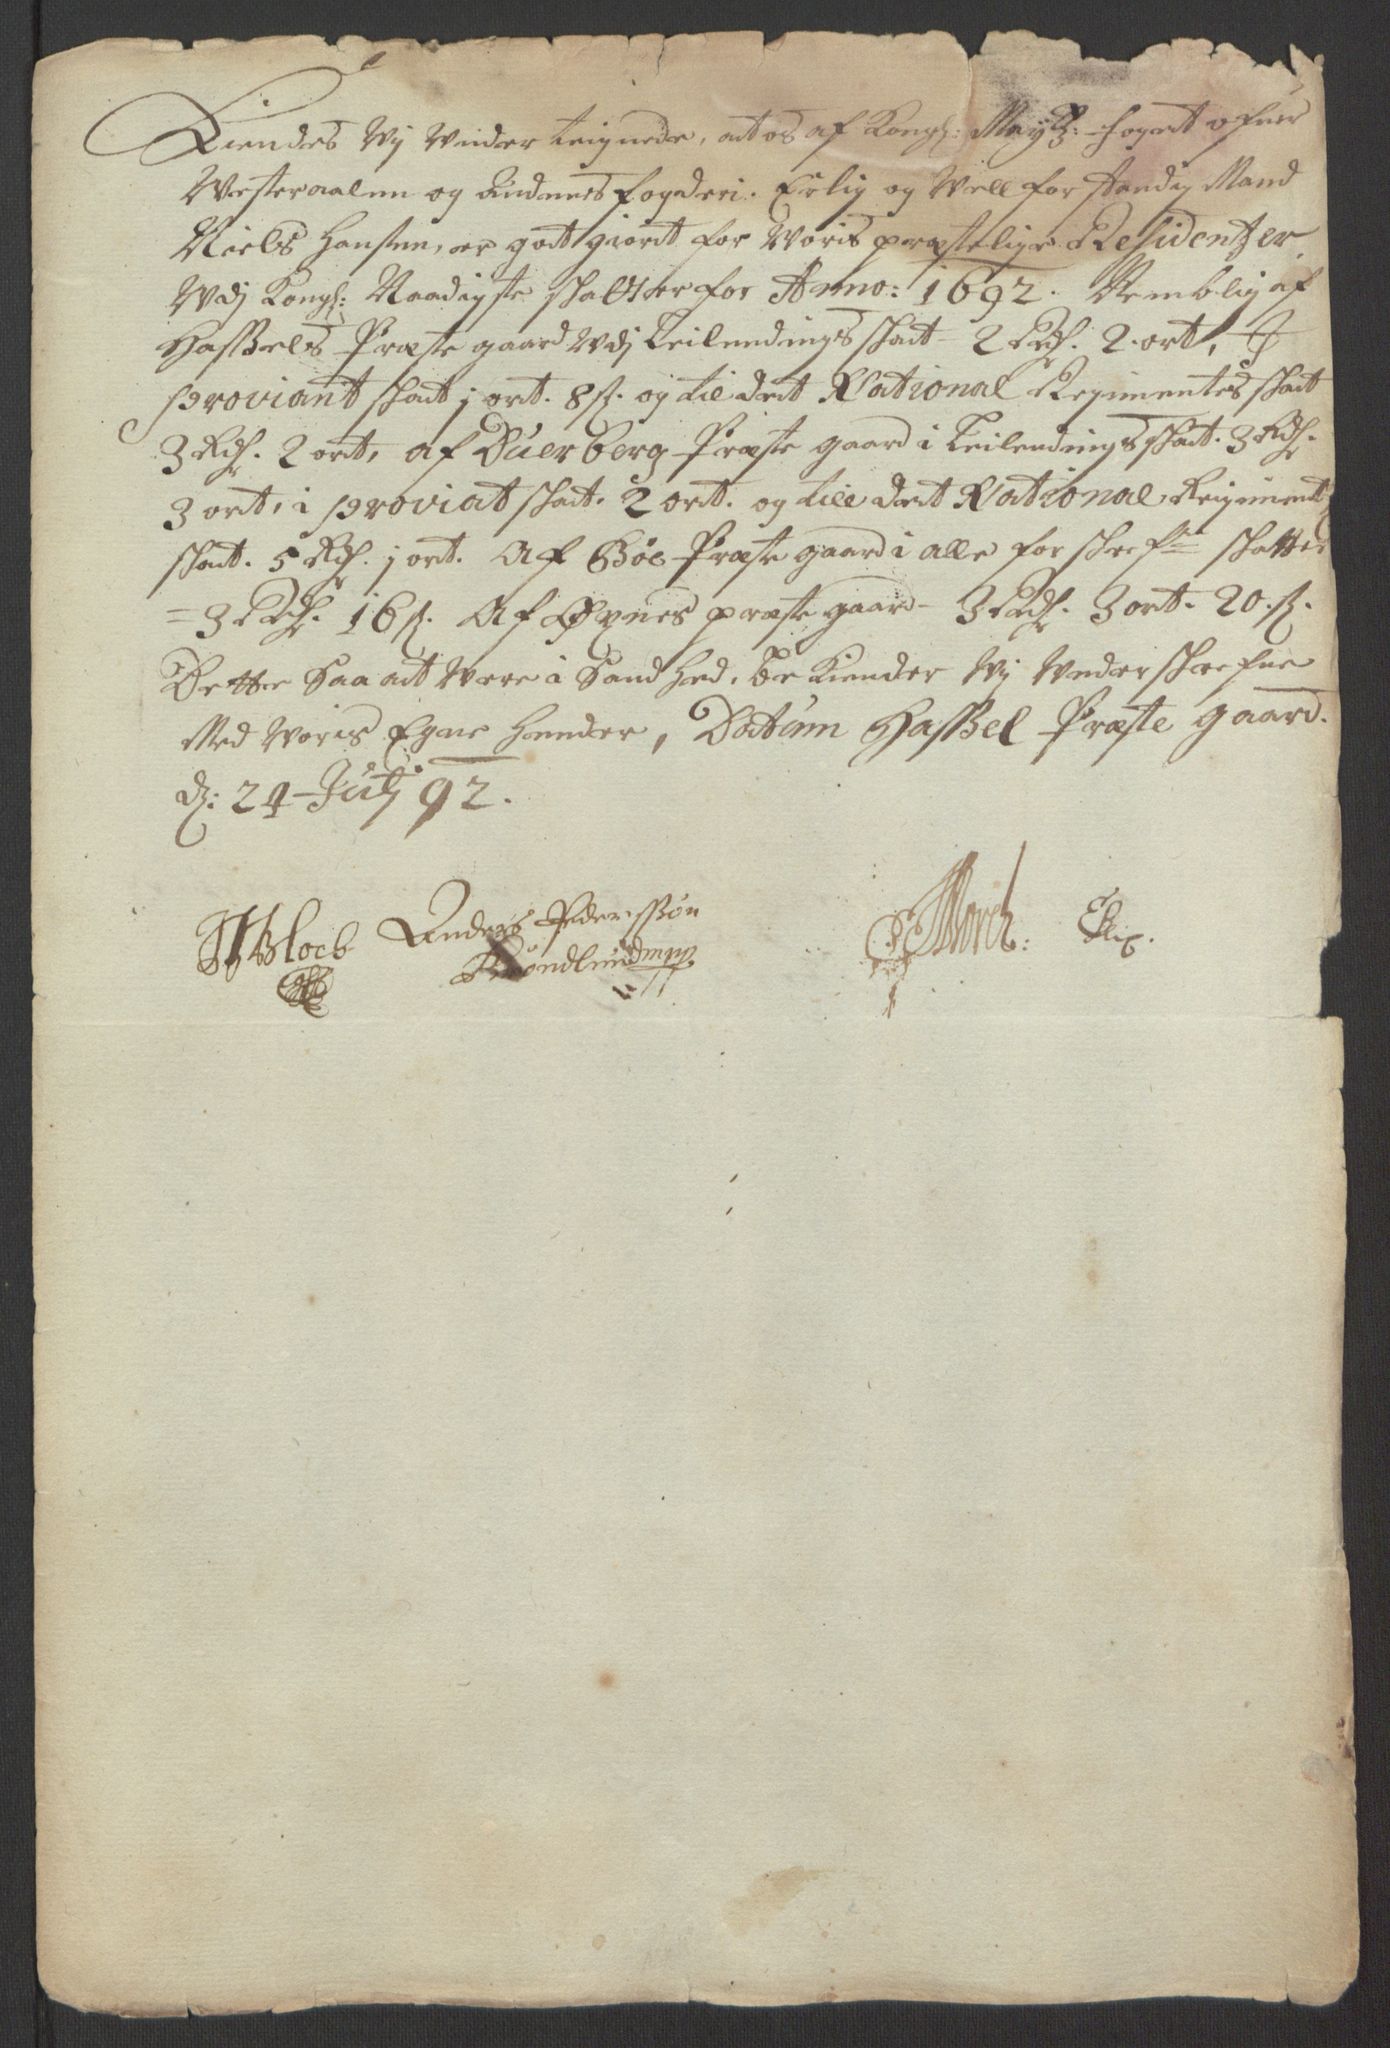 Kiendes Wj Under teignede, at os af Kongl: Maytz: foget ofuer
Westeraalen og Andenes fogderi. Erlig og Vell forstandig Mand
Niels Hansen, er got giort for Woris præstelige Residentzer
Udj Kongl: Naadigste skatter for Anno: 1692. Nemblig af
Hassels Præstegaard Udj Leilendings skat - 2 Rdr. 2. ort, J
proviant skat j ort. 8 ß. og til det National Regimentes skat
3 Rdr. 2 ort, af Duerberg Præstegaard i Leilendings skat. 3 Rdr.
3 ort, i proviat skat. 2 ort. og till det National Regiment
skat. 5 Rdr. j ort. Af Bøe Præstegaard i alle for skrefne skatter
= 3 Rdr. 16 ß. Af Øxnes præstegaard - 3 Rdr. 3 ort. 20. ß.
Dette Saa at Være i Sandhed, be Kiender Wj Underskrefne
Med Woris Egne hender, Datum Hassel Præste gaard.
d: 24 Julj 92.
Bloch Anders Pederssøn Morch: Eli
Røndlund mpp